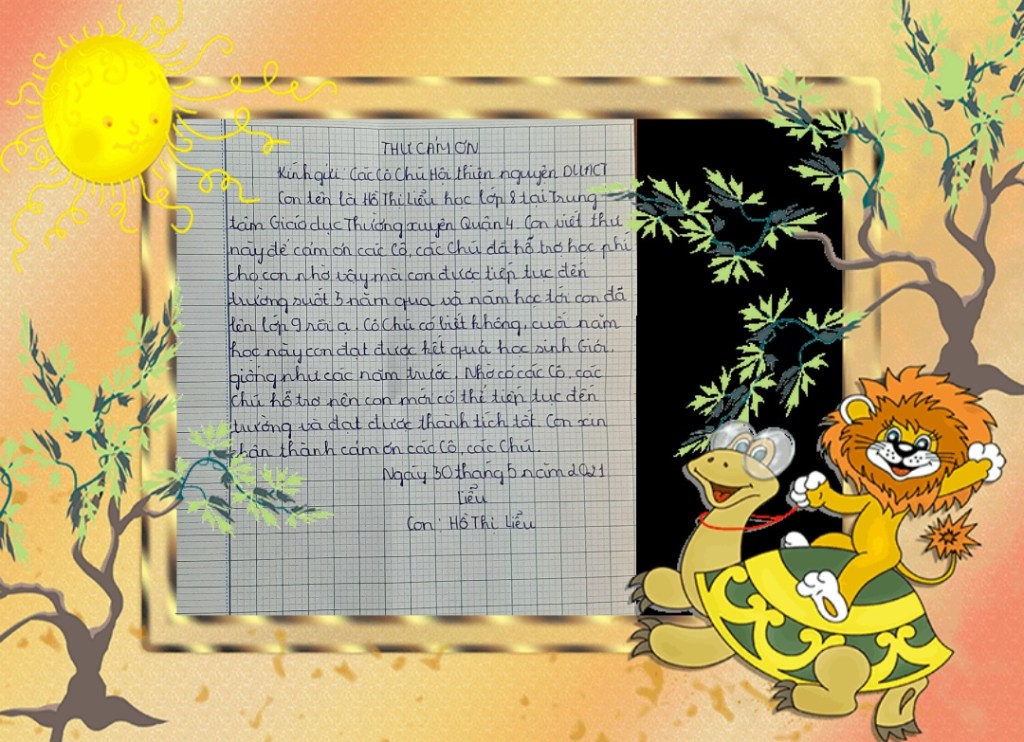 THƯ CẢM ƠN
Kính gửi: Các Cô Chú Hội thiện nguyện DLLACT
Con tên là Hồ Thị Liễu học lớp 8 tại Trung
tâm Giáo dục Thường xuyên Quận 4. Con viết thư
này để cảm ơn các Cô, các Chú đã hỗ trợ học phí
cho con nhờ vậy mà con được tiếp tục đến
trường suốt 3 năm qua và năm học tới con đã
lên lớp 9 rồi ạ. Cô Chú có biết không, cuối năm
học này con đạt được kết quả học sinh Giỏi,
giống như các năm trước. Nhờ có các Cô, các
Chú hỗ trợ nên con mới có thể tiếp tục đến
trường và đạt được thành tích tốt. Con xin
chân thành cảm ơn các Cô, các Chú.
Ngày 30 tháng 5 năm 2021
Liễu
Con: Hồ Thị Liễu